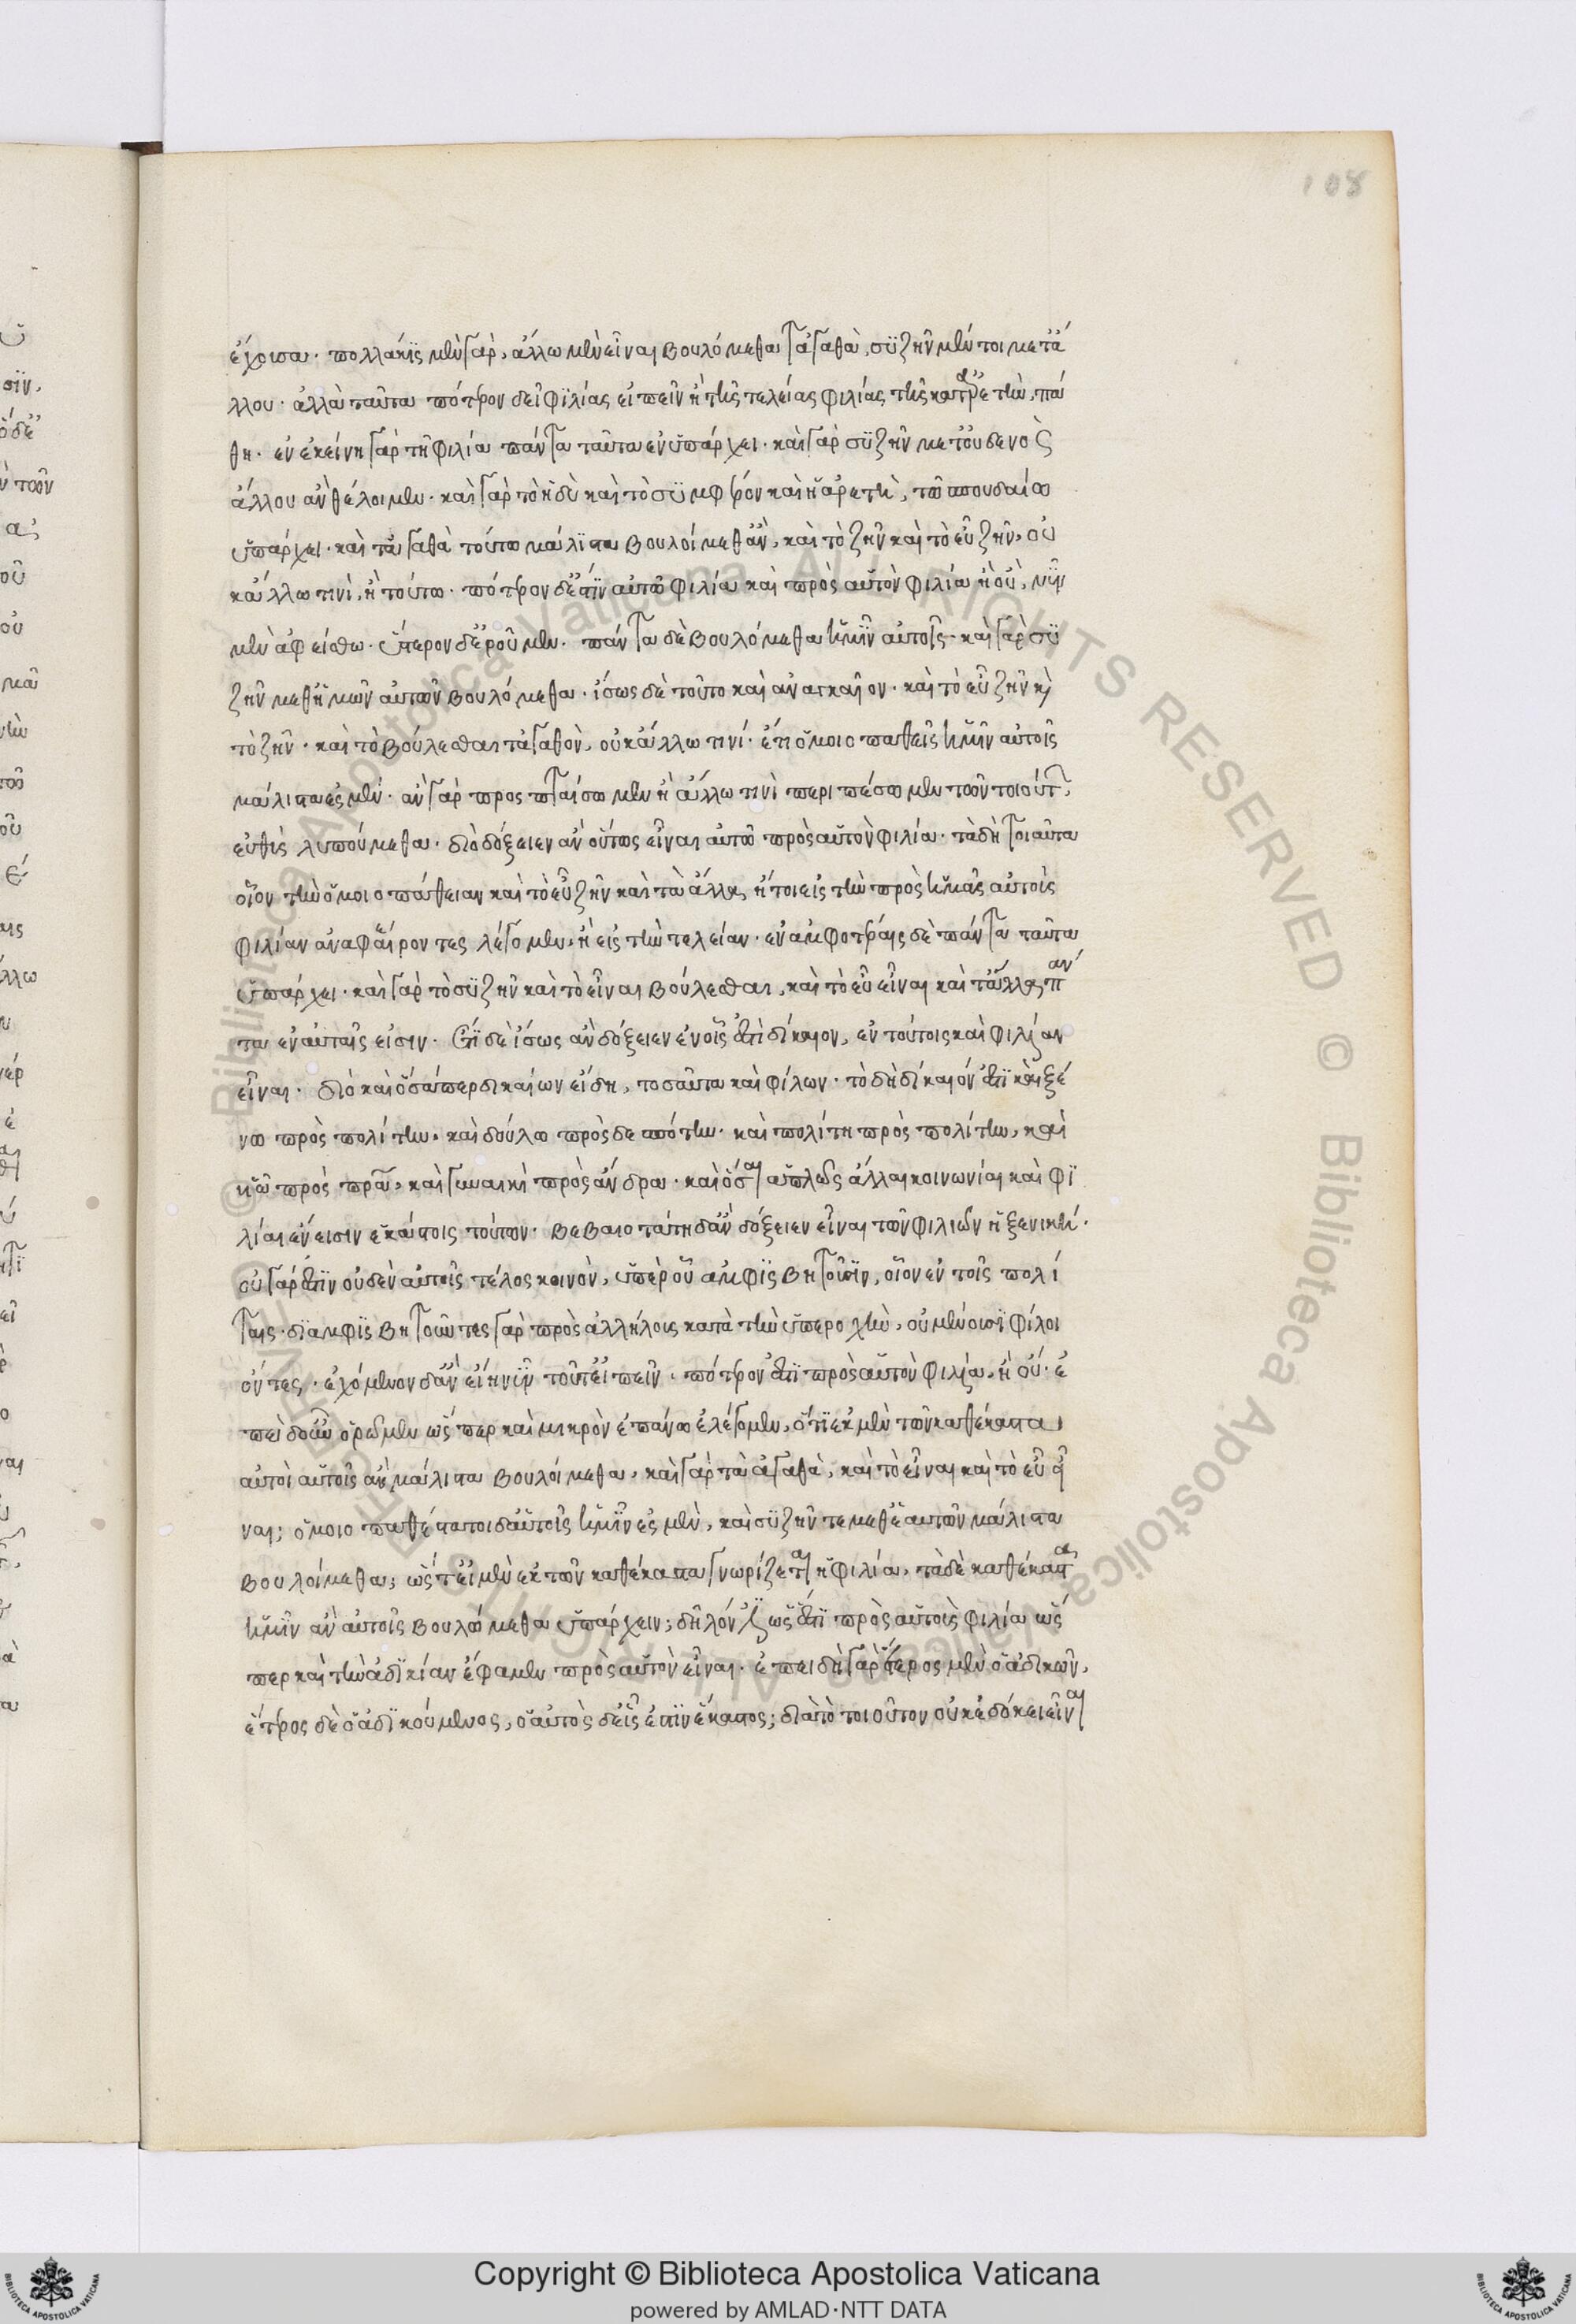 108
ἔχουσα· πολλάκις μὲν γὰρ, ἄλλω μὲν εἶναι βουλόμεθα τἀγαθὰ, συζῆν μέντοι μετ' ἄ
λλου· ἀλλὰ ταῦτα πότερον δεῖ φιλίας εἰπεῖν ἢ τῆς τελείας φιλίας τῆς κατ' ἀρετὴν, πά
θη· ἐν ἐκείνη γὰρ τῆ φιλία πάντα ταῦτα ἐνυπάρχει· καὶ γὰρ συζῆν μετ' οὐδενὸς
ἄλλου ἂν θέλοιμεν· καὶ γὰρ τὸ ἡδὺ καὶ τὸ συμφέρον καὶ ἡ ἀρετὴ, τῶ σπουδαίω
ὑπάρχει· καὶ τἀγαθὰ τούτω μάλιστα βουλοίμεθ' ἂν, καὶ τὸ ζῆν καὶ τὸ εὖ ζῆν, οὐ
κ ἄλλω τινὶ, ἢ τούτω· πότερον δ' ἐστὶν αὐτῶ φιλία καὶ πρὸς αὑτὸν φιλία ἢ οὒ, νῦν
μὲν ἀφείσθω· ὕστερον δ' ἐροῦμεν· πάντα δὲ βουλόμεθα ἡμῖν αὐτοῖς· καὶ γὰρ συ
ζῆν μεθ' ἡμῶν αὐτῶν βουλόμεθα· ἴσως δὲ τοῦτο καὶ ἀναγκαῖον· καὶ τὸ εὖ ζῆν κὶ
τὸ ζῆν· καὶ τὸ βούλεσθαι τἀγαθὸν, οὐκ ἄλλω τινί· ἔτι ὁμοιοπαθεῖς ἡμῖν αὐτοῖς
μάλιστα ἐσμέν· ἂν γὰρ προσπταίσωμεν ἢ ἄλλω τινὶ περιπέσωμεν τῶν τοιούτ,
εὐθὺς λυπούμεθα· διὸ δόξειεν ἂν οὕτως εἶναι αὐτῶ πρὸς αὑτὸν φιλία· τὰ δὴ τοιαῦτα
οἷον τὴν ὁμοιοπάθειαν καὶ τὸ εὖ ζῆν καὶ τὰ ἄλλα, ἤτοι εἰς τὴν πρὸς ἡμᾶς αὐτοὺς
φιλίαν ἀναφέροντες λέγομεν, ἢ εἰς τὴν τελείαν· ἐν ἀμφοτέραις δὲ πάντα ταῦτα
ὑπάρχει· καὶ γὰρ τὸ συζῆν καὶ τὸ εἶναι βούλεσθαι, καὶ τὸ εὖ εἶναι καὶ τἆλλα πάν
τα ἐν αὐταῖς εἰσιν· Ἔτι δὲ ἴσως ἂν δόξειεν ἐν οἷς ἐστὶ δίκαιον, ἐν τούτοις καὶ φιλίαν
εἶναι· διὸ καὶ ὅσάπερ δικαίων εἴδη, τοσαῦτα καὶ φίλων· τὸ δὴ δίκαιόν ἐστι καὶ ξέ
νω πρὸς πολίτην, καὶ δούλω πρὸς δεσπότην· καὶ πολίτη πρὸς πολίτην, καὶ
υἱῶ πρὸς πρα, καὶ γυναικὶ πρὸς ἄνδρα· καὶ ὅσαι ἁπλῶς ἄλλαι κοινωνίαι καὶ φι
λίαι ἔνεισιν ἑκάστοις τούτων· βεβαιοτάτη δ' ἂν δόξειεν εἶναι τῶν φιλιῶν ἡ ξενική·
οὐ γάρ ἐστιν οὐδὲν αὐτοῖς τέλος κοινὸν, ὑπὲρ οὗ ἀμφισβητοῦσιν, οἷον ἐν τοῖς πολί
ταις· διαμφισβητοῦντες γὰρ πρὸς ἀλλήλους κατὰ τὴν ὑπεροχὴν, οὐ μένουσι φίλοι
ὄντες· ἐχόμενον δ' ἂν εἴη νῦν τοῦτ' εἰπεῖν· πότερον ἐστὶ πρὸς αὑτὸν φιλία, ἢ οὔ· ἐ
πεὶ δ' οὖν ὁρῶμεν ὥσπερ καὶ μικρὸν ἐπάνω ἐλέγομεν, ὅτι ἐκ μὲν τῶν καθέκαστα,
αὐτοὶ αὑτοῖς ἂν μάλιστα βουλοίμεθα, καὶ γὰρ τὰ ἀγαθὰ, καὶ τὸ εἶναι καὶ τὸ εὖ εἶ
ναι; ὁμοιοπαθέστατοι δ' αὑτοῖς ἡμῖν ἐσμὲν, καὶ συζῆν τε μεθ' ἑαυτῶν μάλιστα
βουλοίμεθα; ὥστ' εἰ μὲν ἐκ τῶν καθέκαστα γνωρίζεται ἡ φιλία, τὰ δὲ καθέκαστα
ἡμῖν ἂν αὐτοῖς βουλοίμεθα ὑπάρχειν; δῆλόν ὡς ἔστι πρὸς αὑτοὺς φιλία ὥσ
περ καὶ τὴν ἀδικίαν ἔφαμεν πρὸς αὑτὸν εἶναι· ἐπειδὴ γὰρ ἕτερος μὲν ὁ ἀδικῶν,
ἕτερος δὲ ὁ ἀδικούμενος, ὁ αὐτὸς δ' εἷς ἐστὶν ἕκαστος; διὰ τὸ τοιοῦτον οὐκ ἐδόκει εἶναι
Copyright © Biblioteca Apostolica Vaticana
powered by AMLAD·NTT DATA